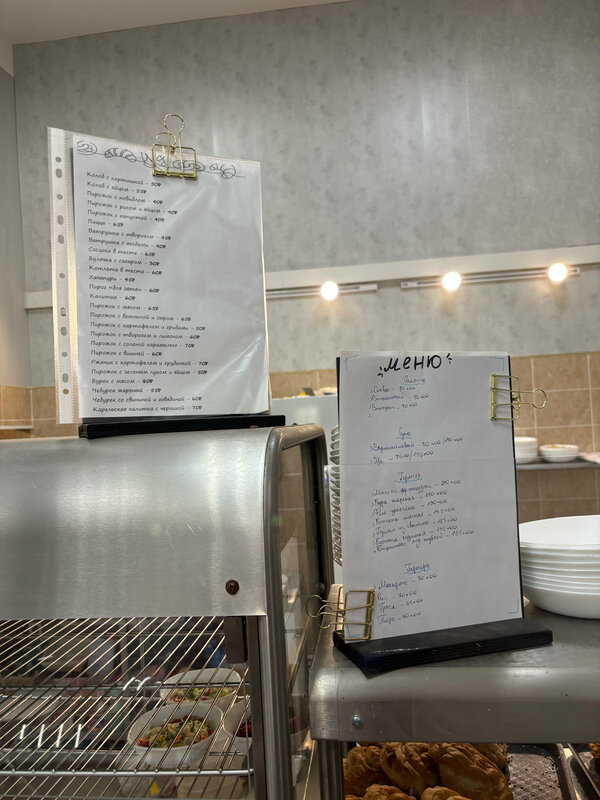 Колоб с картошкой - 50₽
Колоб с яйцом - 55₽
Пирожок с повидлом - 40₽
Пирожок с рисом и яйцом - 40₽
Пирожок с капустой - 40₽
Пицца - 65₽
Ватрушка с творогом - 45₽
Ватрушка с ягодами - 40₽
Сосиска в тесте - 65₽
Булочка с сахаром - 30₽
Котлета в тесте - 60₽
Хачапури - 45₽
Пирог «для зятя» - 60₽
Калитка - 60₽
Пирожок с мясом - 65₽
Пирожок с ветчиной и сыром - 65₽
Пирожок с картофелем и грибами - 50₽
Пирожок с творогом и лимоном - 60₽
Пирожок с соленой карамелью - 70₽
Пирожок с вишней - 60₽
Ржаник с картофелем и грудинкой - 70₽
Пирожок с зеленым луком и яйцом - 50₽
Бурек с мясом - 80₽
Чебурек жареный - 55₽
Чебурек со свининой и говядиной - 60₽
Карельская калитка с черникой - 70₽
Меню
Салаты
Супы
Горячее
Мясо по французски
Кура жареная
Гуляш из свинины
Гарниры
Макароны
Рис
Греча
Пюре